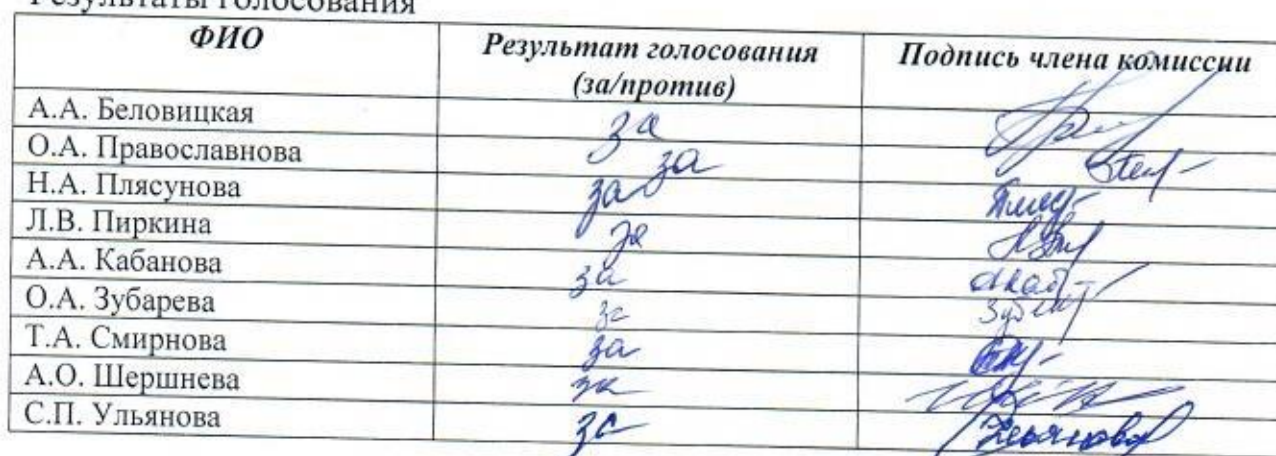 Результаты голосования
ФИО Результат голосования (за/против) Подпись члена комиссии
А.А. Беловицкая за
О.А. Православнова за
Н.А. Плясунова за
Л.В. Пиркина за
А.А. Кабанова за
О.А. Зубарева за
Т.А. Смирнова за
А.О. Шершнева за
С.П. Ульянова за Ульянова